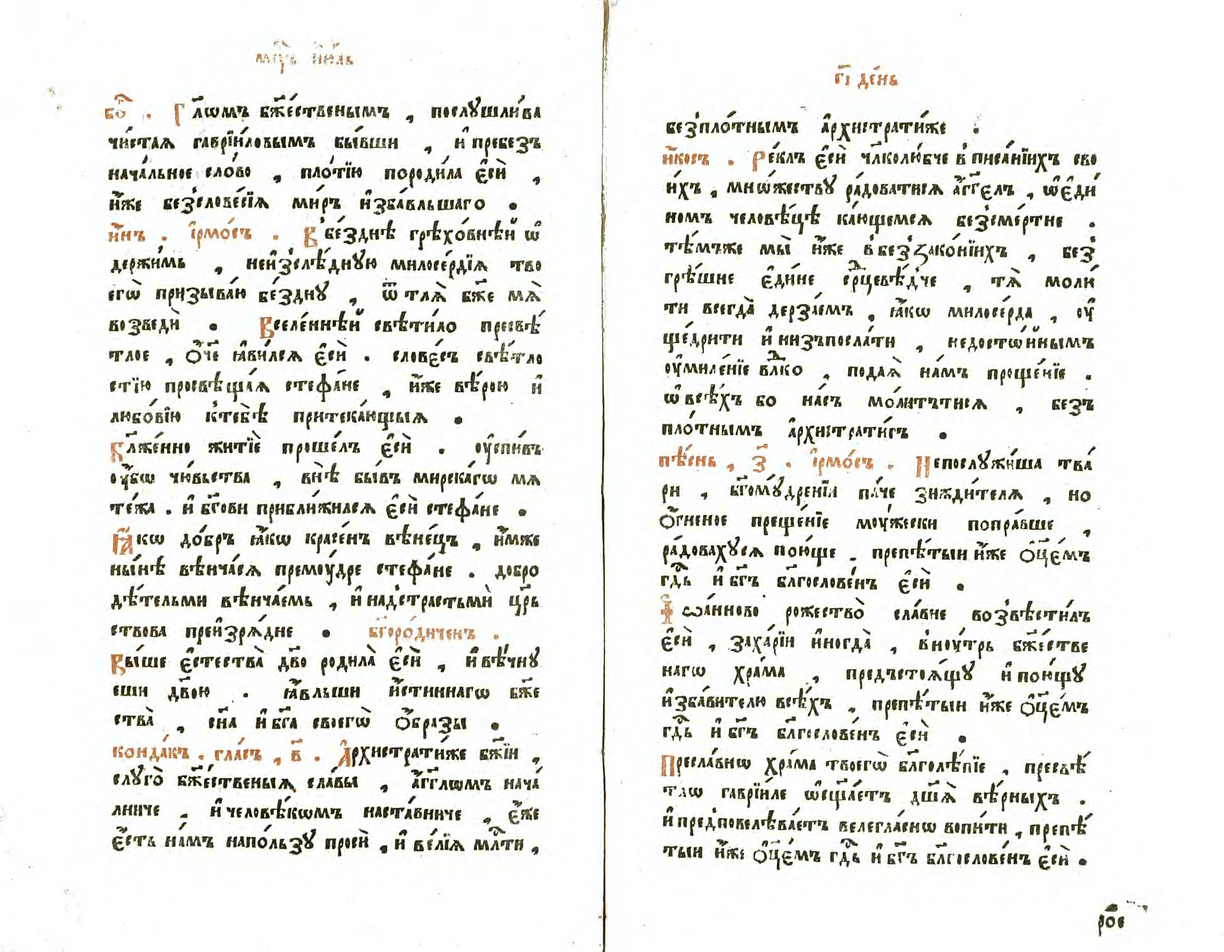 мц҃ъ і҆ю́ль
бо҃ . Гл҃ѡмъ бж҃е́ственымъ , послꙋшли́ва
чи́стаѧ гаврїи́ловымъ бы́вши , и҆ пребезъ
нача́льное сло́во , пло́тїю породила є҆сѝ ,
и҆́же безслове́сїѧ ми́ръ и҆зба́вльшаго .
и҆́нъ . і҆рмо́съ . В бе́зднѣ грѣхо́внѣй ѡ҆
держи́мь , неизслѣ́днꙋю милосе́рдїѧ тво
егѡ̀ призыва́ю бе́зднꙋ , ѿ тлѧ̀ бж҃е мѧ̀
возведѝ . Вселе́ннѣй свѣти́ло пресвѣ́
тлое , ѻ҆́ч҃е ꙗ҆ви́лсѧ є҆сѝ . слове́съ свѣ́тло
стїю просвѣща́ѧ стефа́не , и҆́же вѣ́рою и҆
любо́вїю к̾тебѣ̀ притека́ющыѧ .
Бл҃же́нно житїѐ проше́лъ є҆сѝ . оу҆спи́въ
оу҆́бѡ чю́вьства , внѣ̀ бы́въ мирска́гѡ мѧ
те́жа . и҆ бг҃ови прибли́жилсѧ є҆сѝ стефа́не .
Ꙗ҆́кѡ до́бръ ꙗ҆́кѡ кра́сенъ вѣне́цъ , и҆́мже
ны́нѣ вѣнча́сѧ премоу́дре стефа́не . добро
дѣ́тельми вѣнча́емь , и҆ над̾страстьмѝ цр҃ь
ствова преизрѧ́дне . бг҃оро́диченъ .
Вы́ше є҆стества̀ дв҃о роди́ла є҆сѝ , и҆ вѣ́чнꙋ
еши дв҃ою . ꙗ҆́вльши и҆́стиннагѡ бж҃е
ства̀ , сн҃а и҆ бг҃а своегѡ̀ ѻ҆́бразы .
конда́къ . гла́съ , в҃ . А҆рхистрати́же бж҃їи ,
слꙋго̀ бж҃е́ственыѧ сла́вы , а҆́гг҃лѡмъ нача́
лниче , и҆ человѣ́кѡмъ наста́вниче , є҆́же
є҆́сть на́мъ напо́льзꙋ просѝ , и҆ ве́лїѧ мл҃ти ,
г҃і де́нь
безпло́тнымъ а҆рхистрати́же .
и҆́косъ . Ре́клъ є҆сѝ чл҃колю́бче в̾писа́нїихъ сво
и́хъ , мно́жествꙋ ра́доватисѧ а҆́гг҃елъ , ѡ҆ є҆ди́
номъ человѣ́цѣ ка́ющемсѧ безсме́ртне .
тѣ́мъже мы̀ и҆́же в̾беззако́нїихъ , без
грѣ́шне є҆ди́не ср҃цевѣ́дче , тѧ̀ моли
ти всегда̀ дерза́емъ , ꙗ҆́кѡ милосе́рда , оу҆
ще́дрити и҆ низъпосла́ти , недосто́йнымъ
оу҆миле́нїе влⷣко , подаѧ̀ на́мъ проще́нїе .
ѡ҆ всѣ́хъ бо на́съ мо́литътисѧ , безъ
пло́тнымъ а҆рхистрати́гъ .
пѣ́снь , з҃ . і҆рмо́съ . Непослꙋжи́ша тва́
ри , бг҃омꙋ́дренїи па́че зижди́телѧ , но
ѻ҆́гненое преще́нїе моу́жески попра́вше ,
ра́довахꙋсѧ пою́ще , препѣ́тыи и҆́же ѻ҆ц҃е́мъ
гд҃ь и҆ бг҃ъ бл҃гослове́нъ є҆сѝ .
І҆ѡа́нново рожество̀ сла́вне возвѣсти́лъ
є҆сѝ , заха́рїи и҆ногда̀ , внꙋ́трь бж҃е́стве
нагѡ хра́ма , предъстоѧ́щꙋ и҆ пою́щꙋ
и҆зба́вителю всѣ́хъ , препѣ́тыи и҆́же ѻ҆ц҃е́мъ
гд҃ь и҆ бг҃ъ бл҃гослове́нъ є҆сѝ .
Пресла́внѡ хра́ма твоегѡ̀ бл҃голѣ́пїе , пресвѣ́
тлѡ гаврїи́ле ѡ҆свѣща́етъ дш҃а вѣ́рныхъ .
и҆ предповелѣва́етъ велегла́снѡ вопи́ти , препѣ́
тыи и҆́же ѻ҆ц҃е́мъ гд҃ь и҆ бг҃ъ бл҃гослове́нъ є҆сѝ .
рое҃